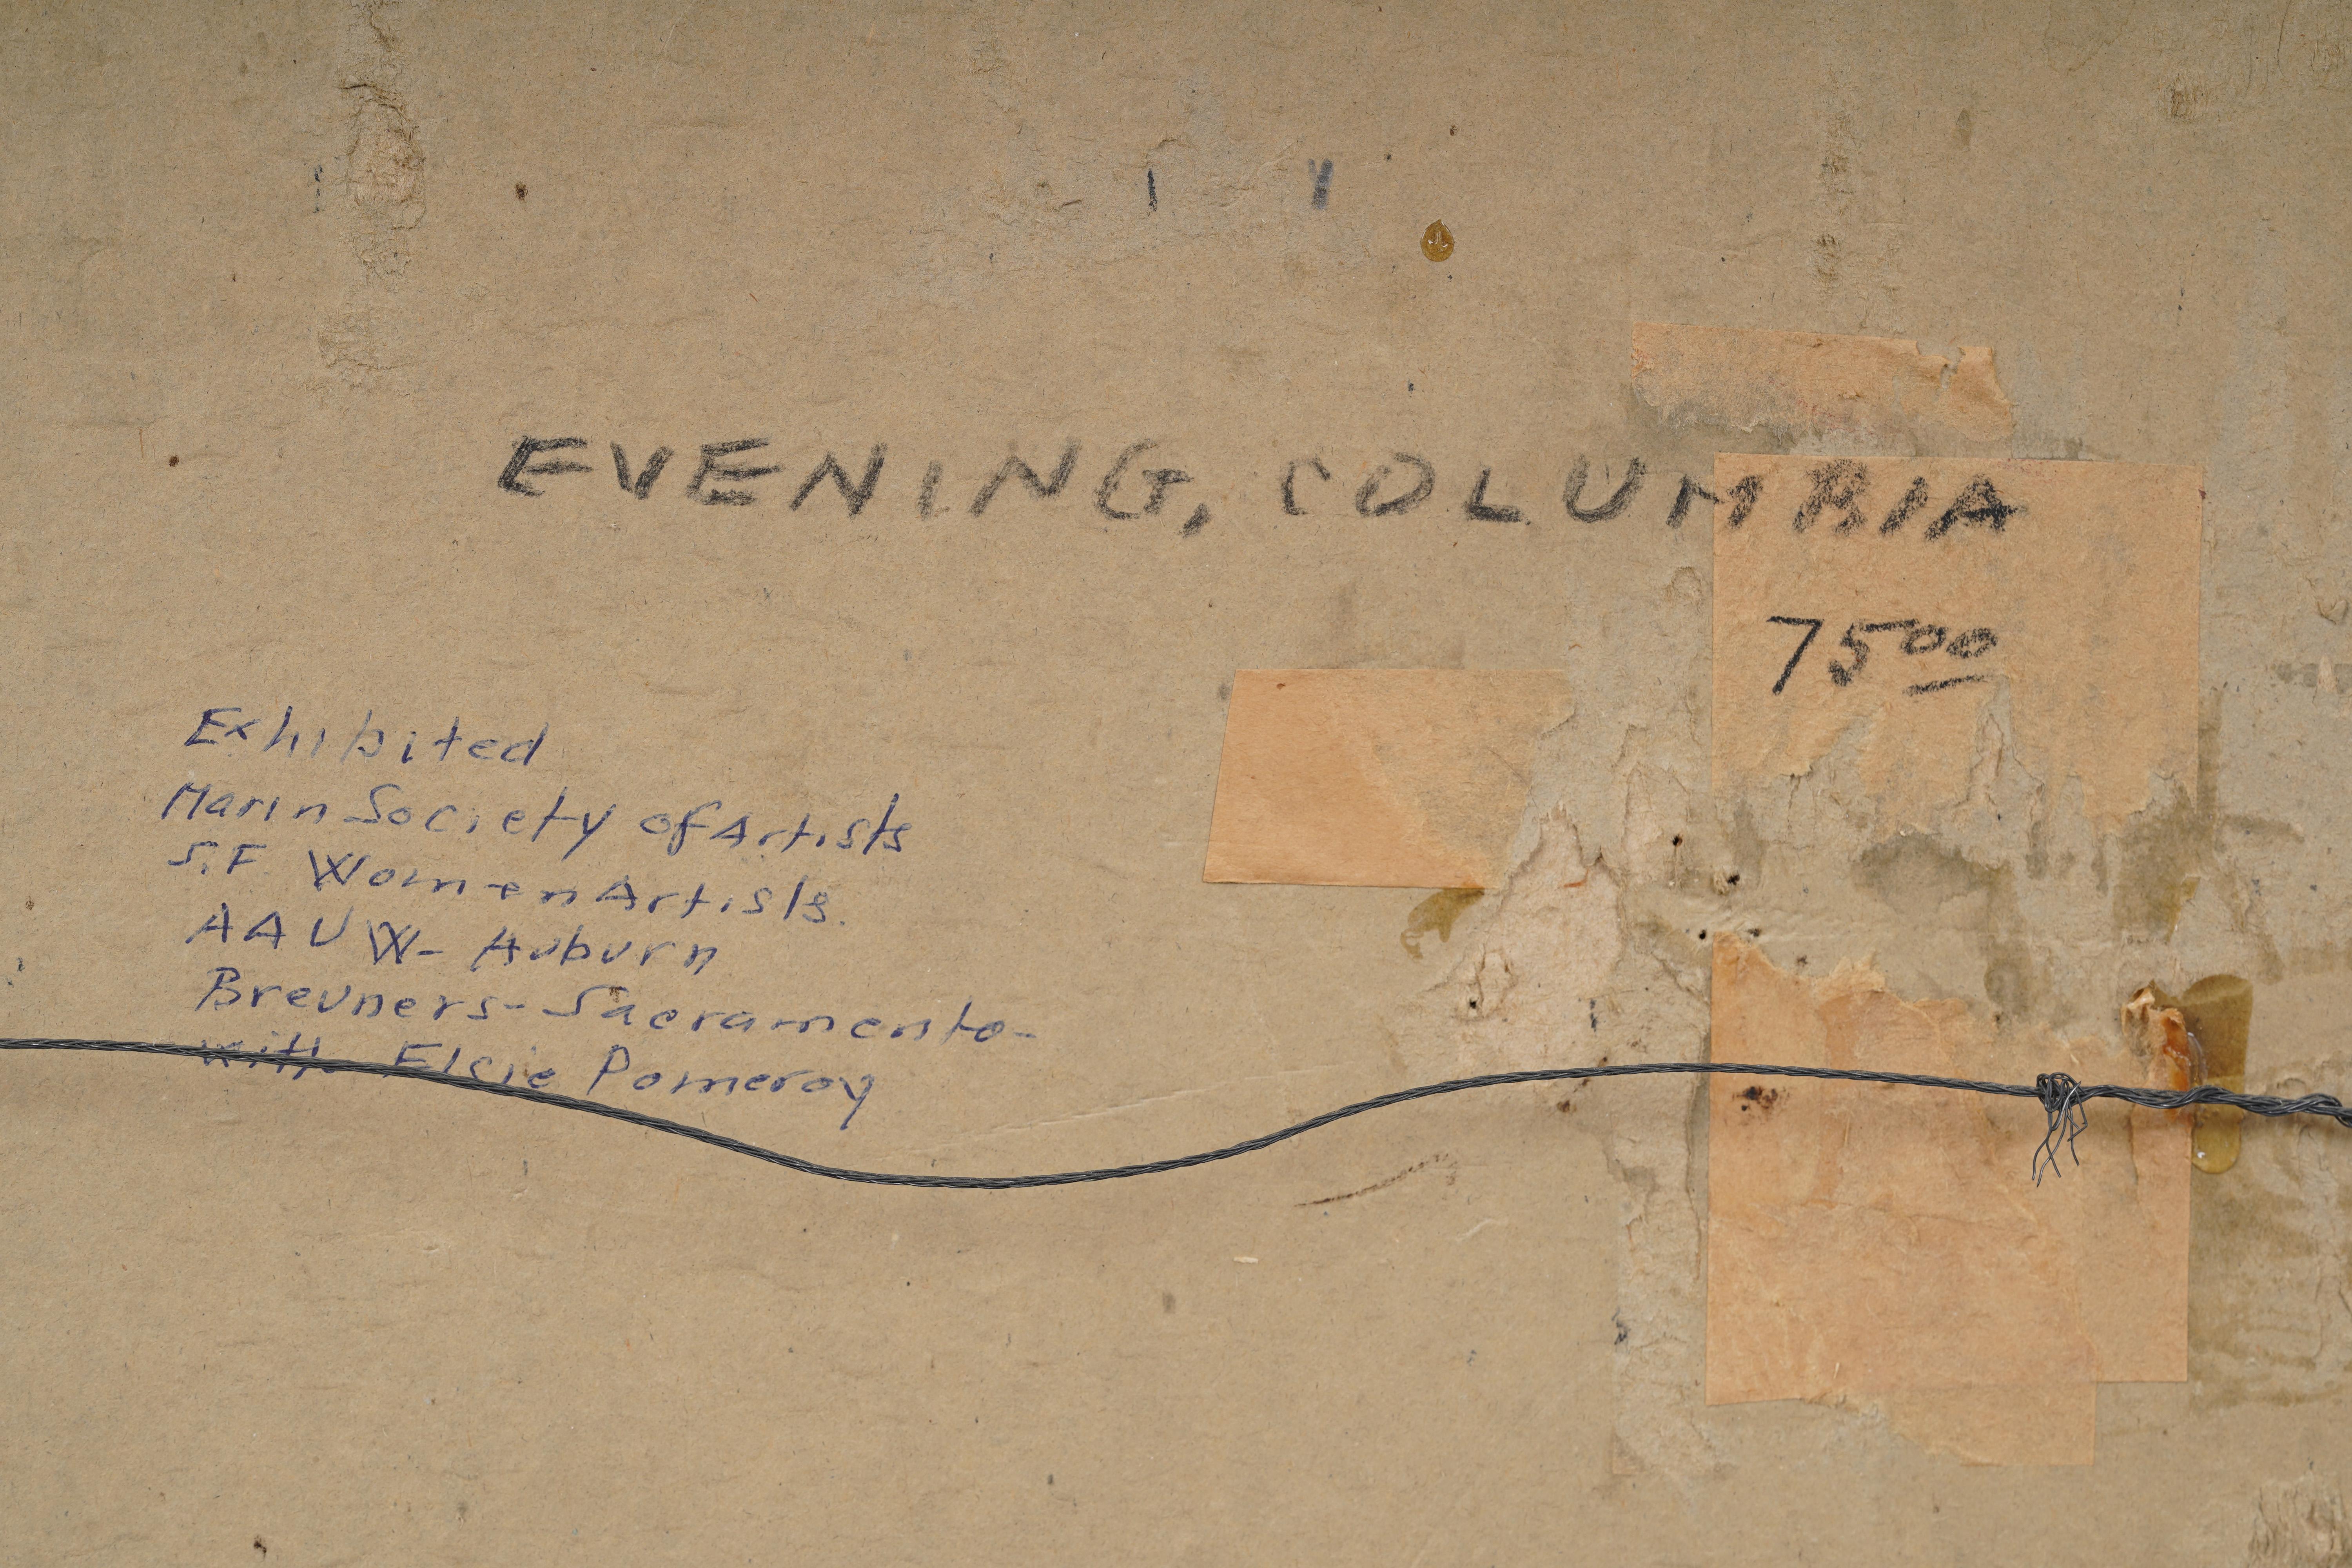 EVENING, COLUMBIA
75 00
Exhibited
Marin Society of Artists
S.F Women Artists.
AAUW- Auburn
Breuners- Sacramento-
with Elsie Pomeroy